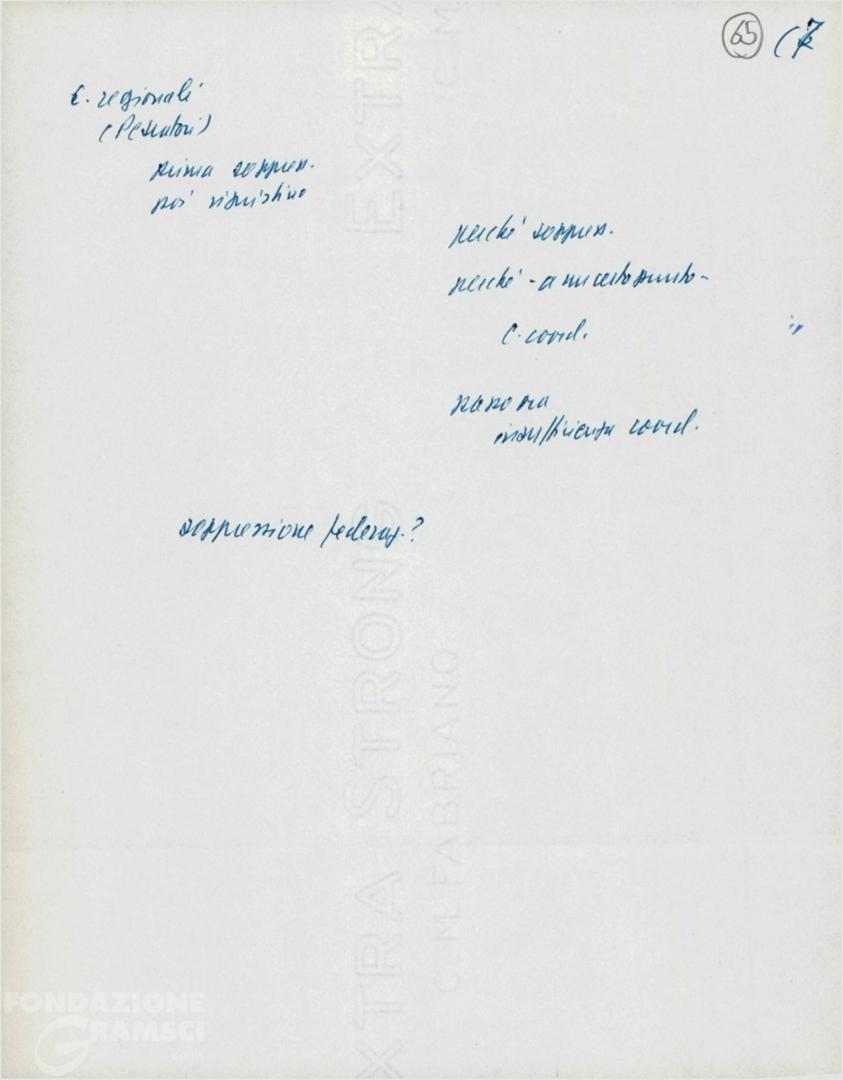 65 (7
C. regionali
(Pescatori)
prima soppress.
poi ripristino
perché soppress.
perché - a un certo punto -
C. coord.
insufficienza coord.
soppressione federaz.?
EXTRA STRONG
C. M. FABRIANO
FONDAZIONE
GRAMSCI